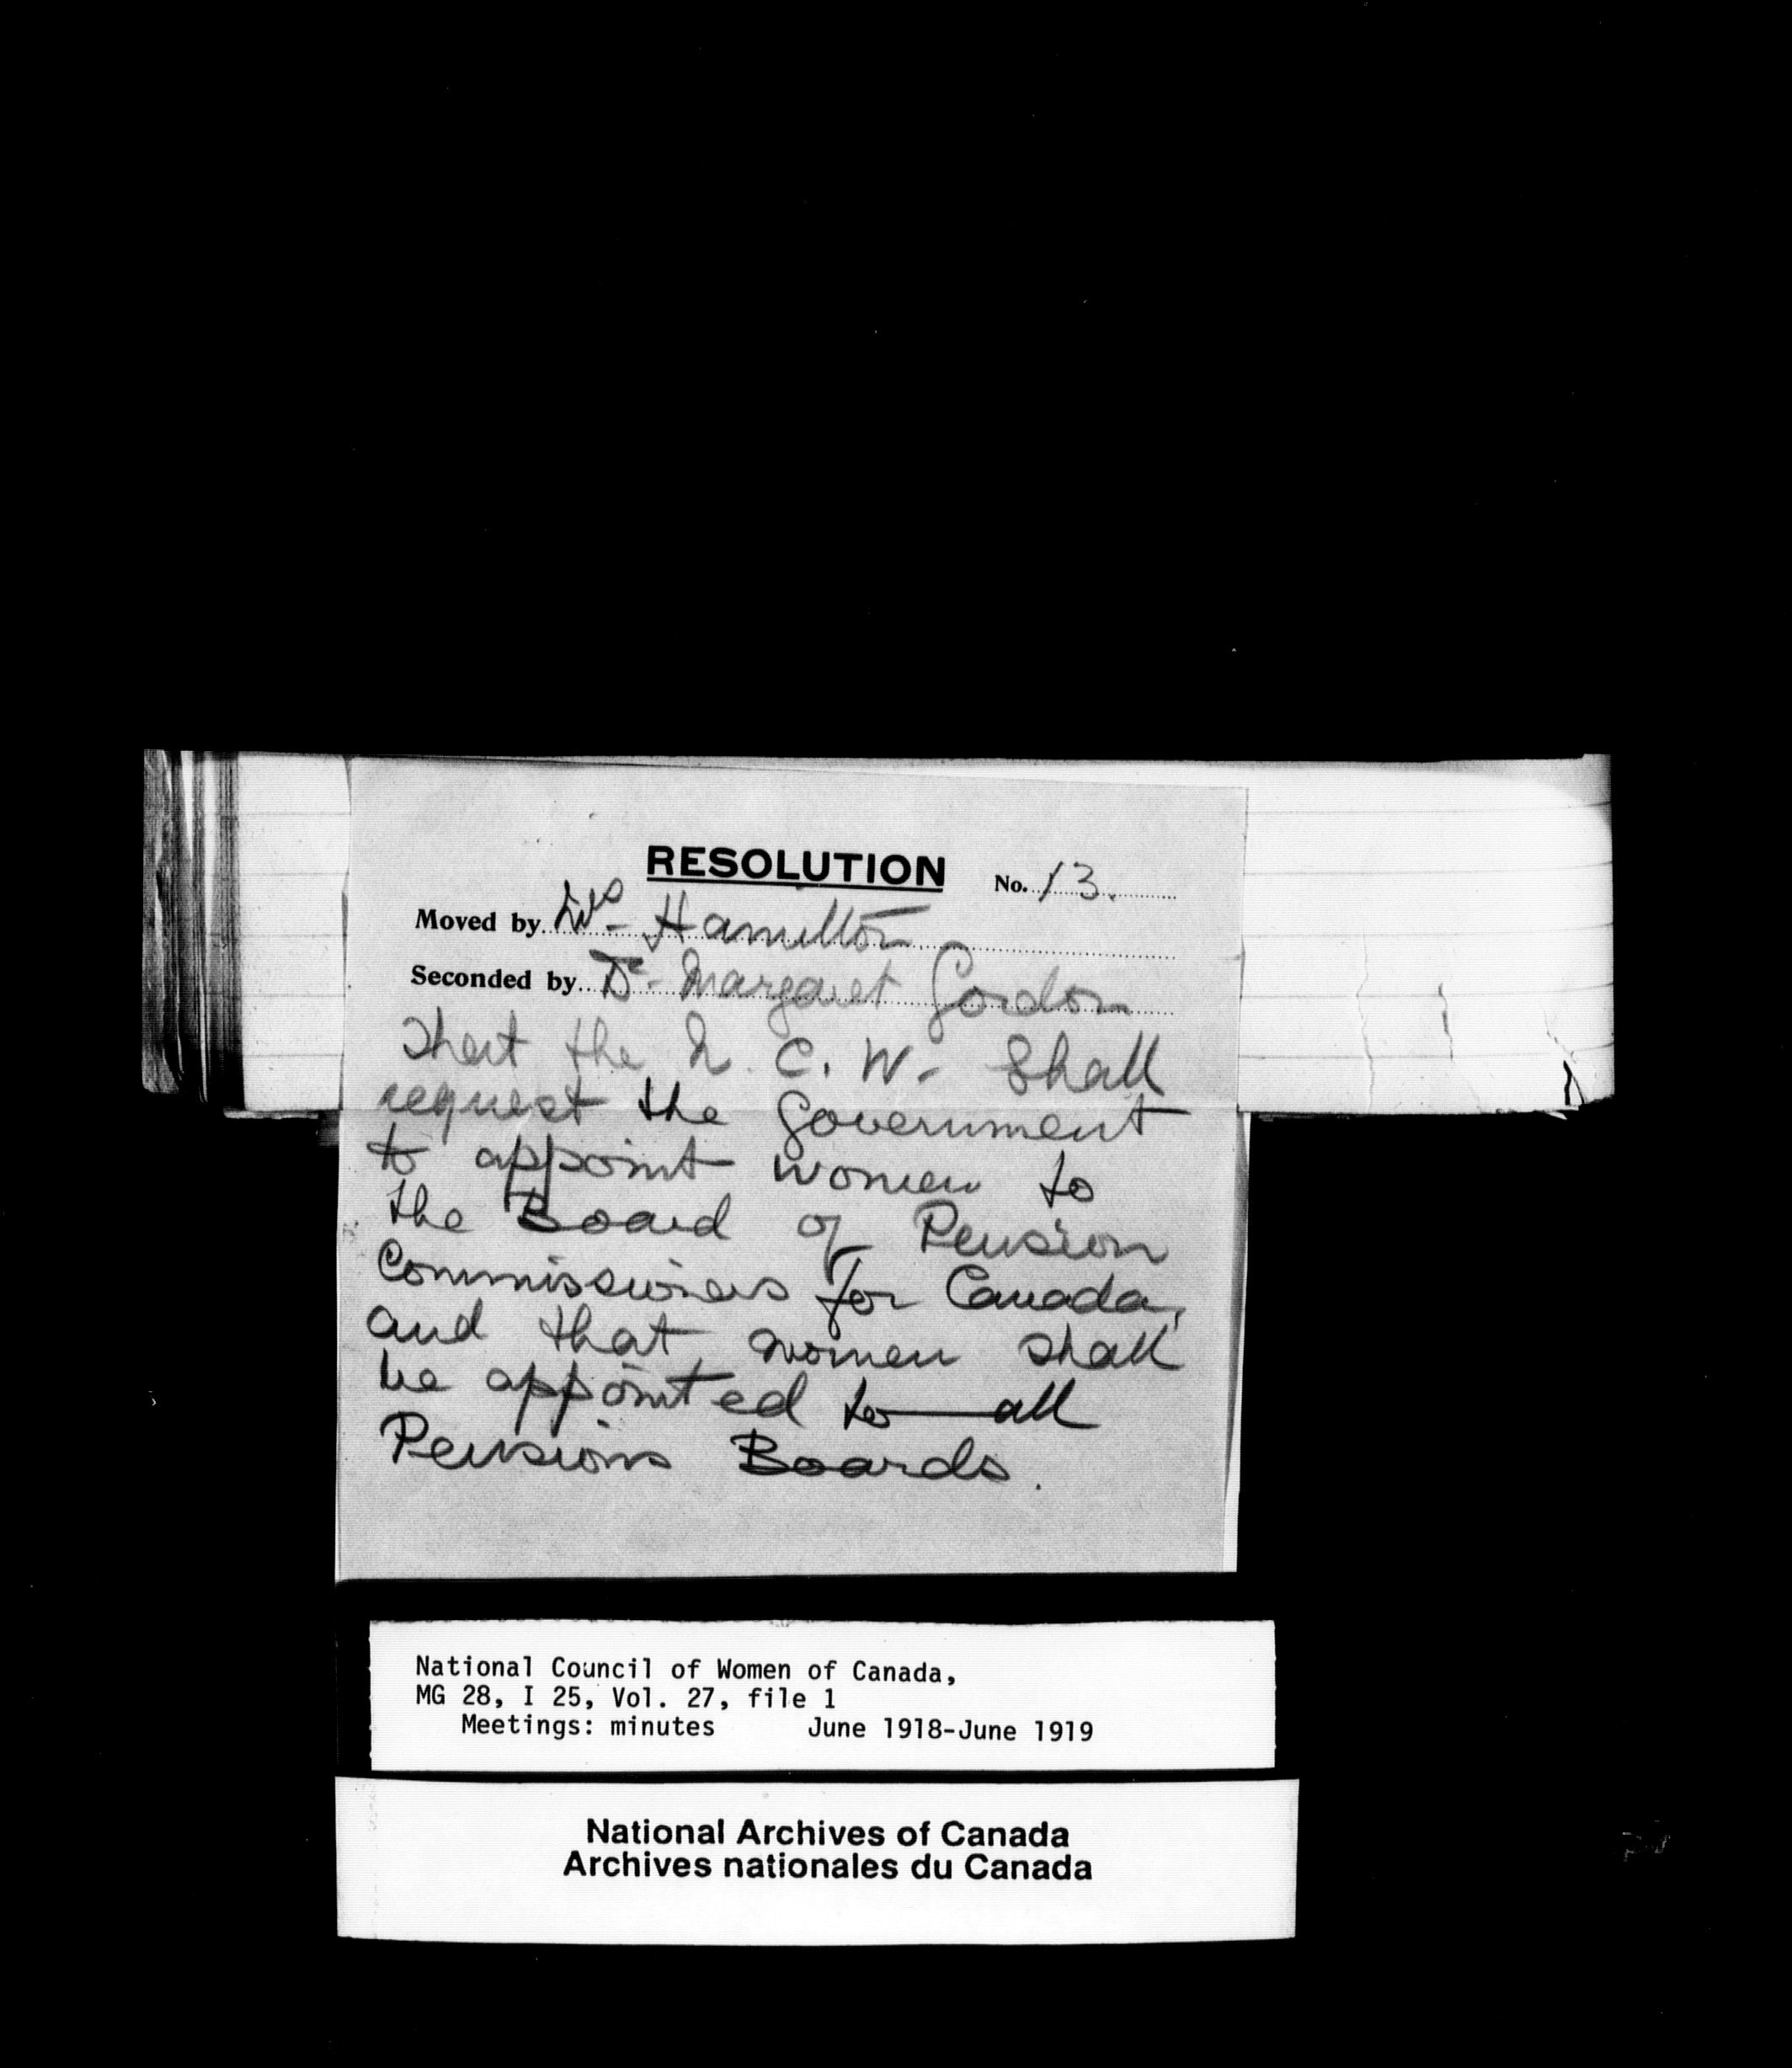 RESOLUTION No. 13.
Moved by Mrs. Hamilton
Seconded by Dr. Margaret Gordon
That the N. C. W. Shall
request the Government
to appoint women to
the Board of Pension
Commissioners for Canada,
and that women shall
be appointed to all
Pensions Boards.
National Council of Women of Canada,
MG 28, I 25, Vol. 27, file 1
Meetings: minutes June 1918-June 1919
National Archives of Canada
Archives nationales du Canada